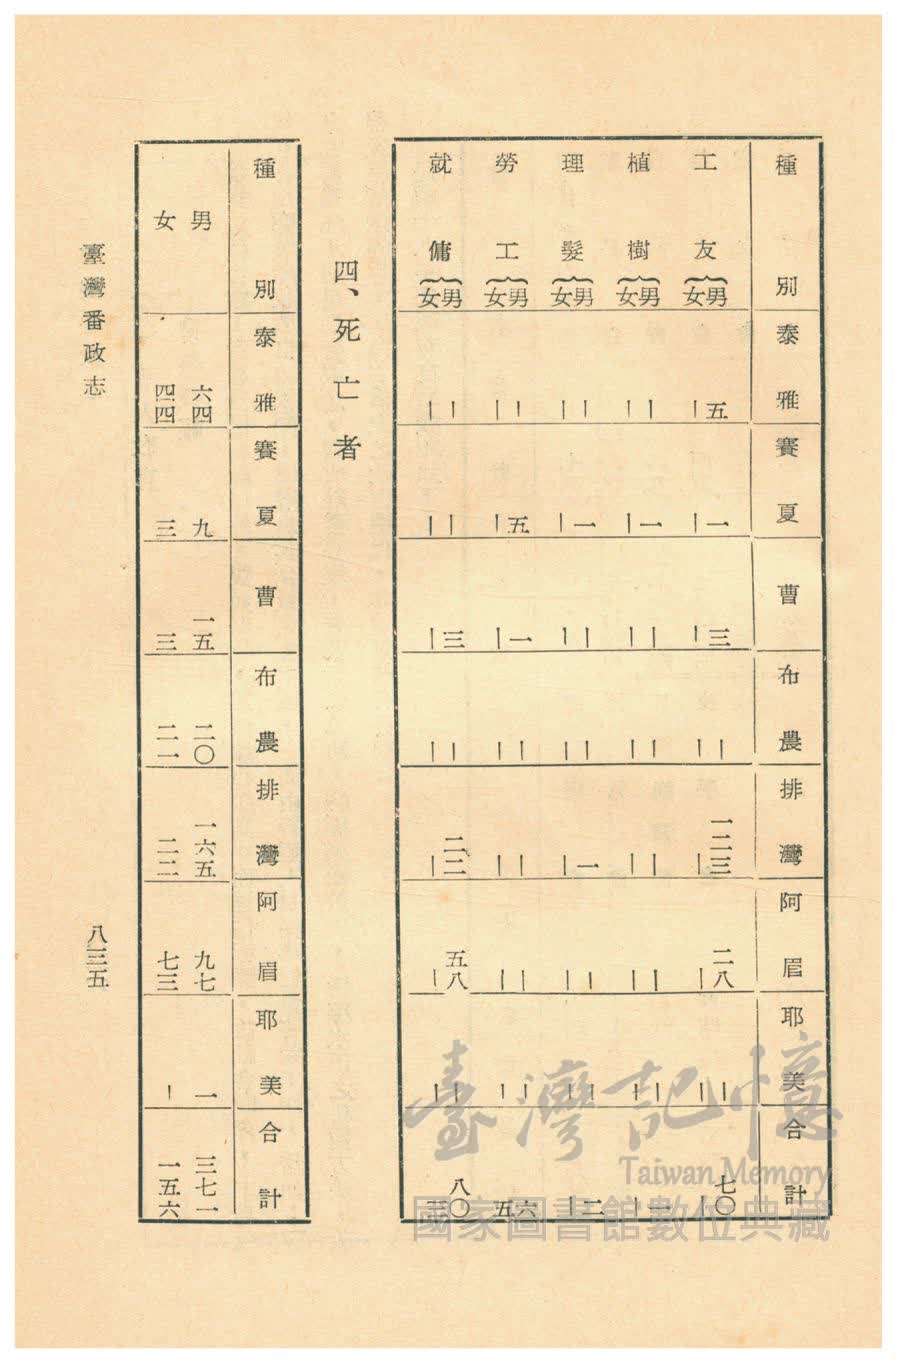 種別 泰雅 賽夏 曹 布農 排灣 阿眉 耶美 合計
工友 男 五 一 三 ｜ 一二三 二八 ｜ 七〇
女 ｜ ｜ ｜ ｜ ｜ ｜ ｜ ｜
植樹 男 ｜ 一 ｜ ｜ ｜ ｜ ｜ 一
女 ｜ ｜ ｜ ｜ ｜ ｜ ｜ ｜
理髮 男 ｜ 一 ｜ ｜ 一 ｜ ｜ 二
女 ｜ ｜ ｜ ｜ ｜ ｜ ｜ ｜
勞工 男 ｜ 五 一 ｜ ｜ ｜ ｜ 六
女 ｜ ｜ ｜ ｜ ｜ ｜ ｜ 五
就傭 男 ｜ ｜ 三 ｜ 二二 五八 ｜ 八〇
女 ｜ ｜ ｜ ｜ ｜ ｜ ｜
四、死亡者
種別 泰雅 賽夏 曹 布農 排灣 阿眉 耶美 合計
男 六四 九 一五 二〇 一六五 九七 一 三七一
女 四四 三 三 二一 二二 七三 ｜ 一五六
臺灣番政志
八三五
臺灣記憶
Taiwan Memory
國家圖書館數位典藏